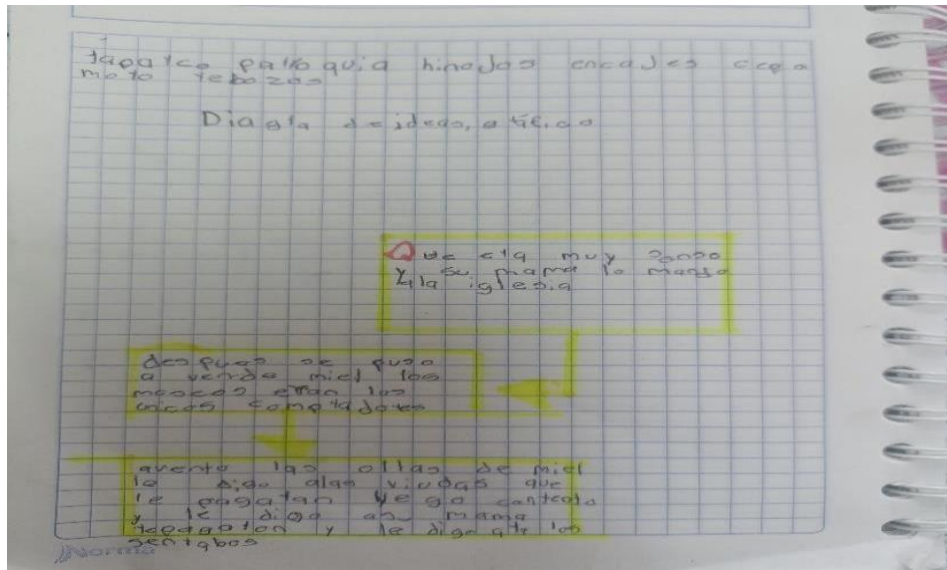 tapatco parroquia hinojos encajes
moto rebozos
Diagra de ideas,
Que era muy sonso
y su mama lo manso
ala iglesia
despues se puso
a vende miel los
moscos eran los
unicos compradores
avento las ollas de miel
le digo alas viudas que
le pagaran y ego contento
y le digo asu mama
tepagaron y le digo los
sentabos
Norma